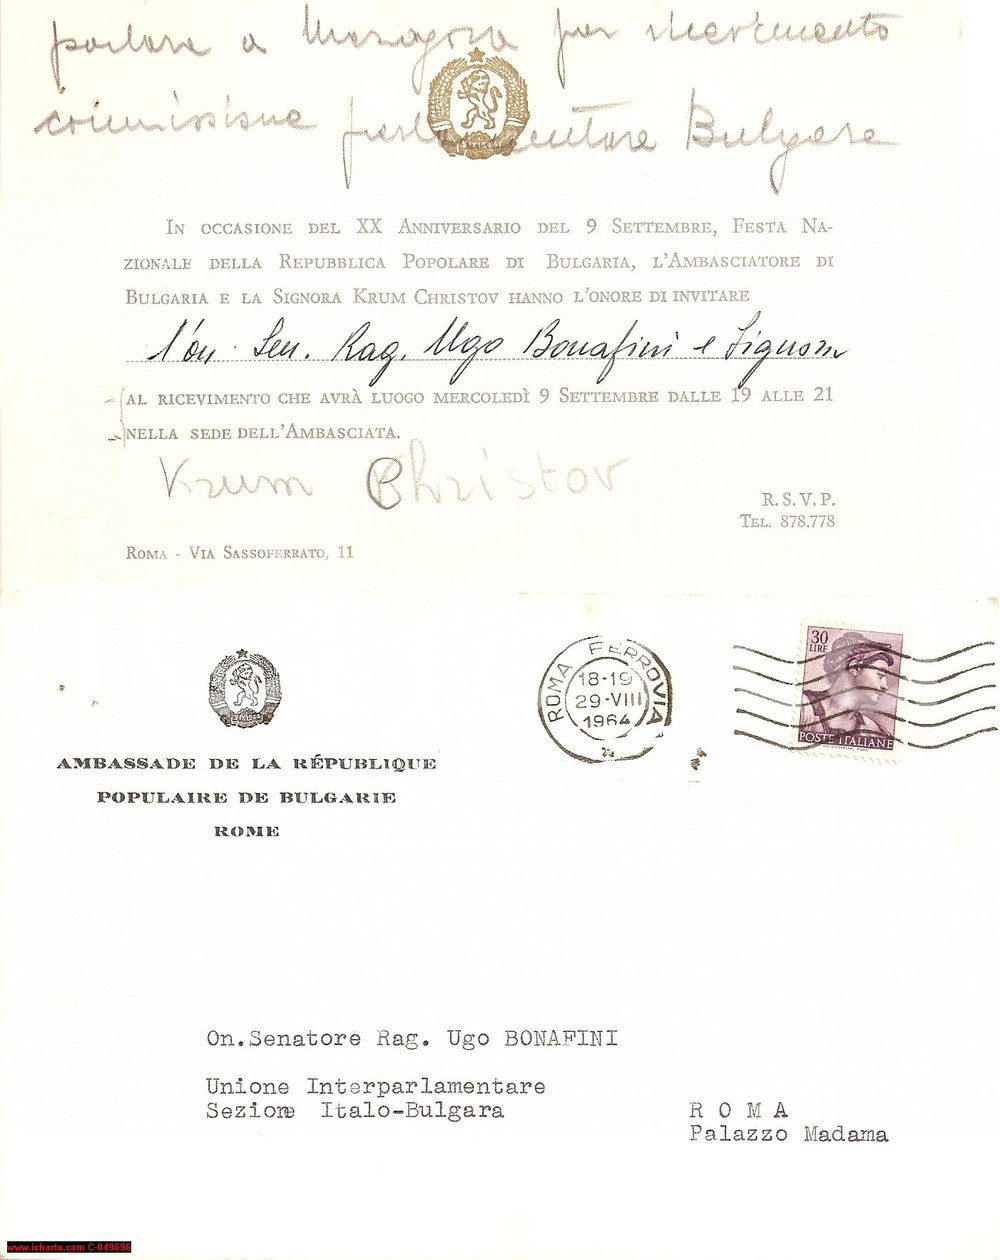 parlare a per ricevimento
commissione Bulgara
In occasione del XX Anniversario del 9 Settembre, Festa Na-
zionale della Repubblica Popolare di Bulgaria, l'Ambasciatore di
Bulgaria e la Signora Krum Christov hanno l'onore di invitare
l'on. Sen. Rag. Ugo Bonafini e Signora
al ricevimento che avrà luogo mercoledì 9 Settembre dalle 19 alle 21
nella sede dell'Ambasciata.
Krum Christov
R. S. V. P.
Tel. 878.778
Roma - Via Sassoferrato, 11
AMBASSADE DE LA RÉPUBLIQUE
POPULAIRE DE BULGARIE
ROME
ROMA FERROVIA
18-19
29-VIII
1964
30
LIRE
POSTE ITALIANE
On.Senatore Rag. Ugo BONAFINI
Unione Interparlamentare
Sezione Italo-Bulgara
R O M A
Palazzo Madama
www.icharta.com C-049696